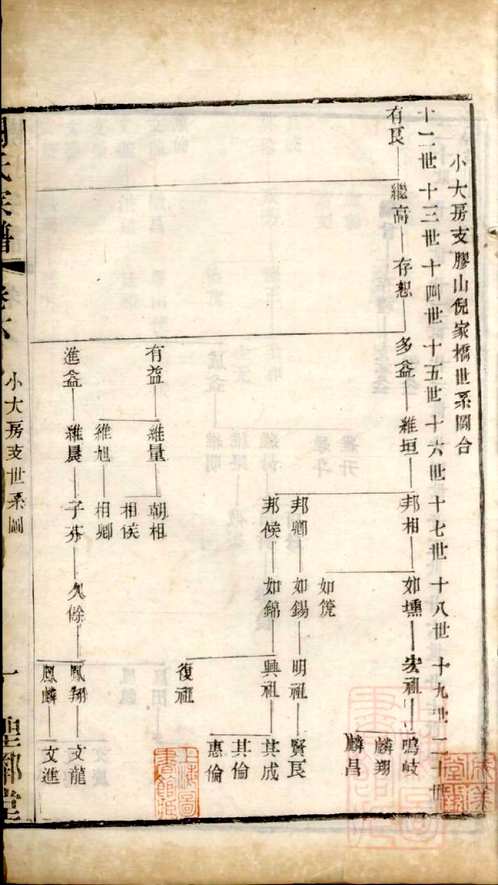 小大房支膠山倪家橋世系圖合
十二世十三世十四世十五世十六世十七世十八世十九世二十世
有艮 繼高 存恕 多益 維垣 邦相 如壎 宏祖 鳴岐
麟翔
麟昌
如箎
邦卿 如錫 明祖 賢艮
邦候 如錦 興祖 其成
其倫
惠倫
復祖
有益 維量 朝相
相侯
維旭 相卿
進益 維晨 子芬 久餘 鳳翔 文龍
鳳麟 文進
氏宗譜 卷六 小大房支世系圖 一